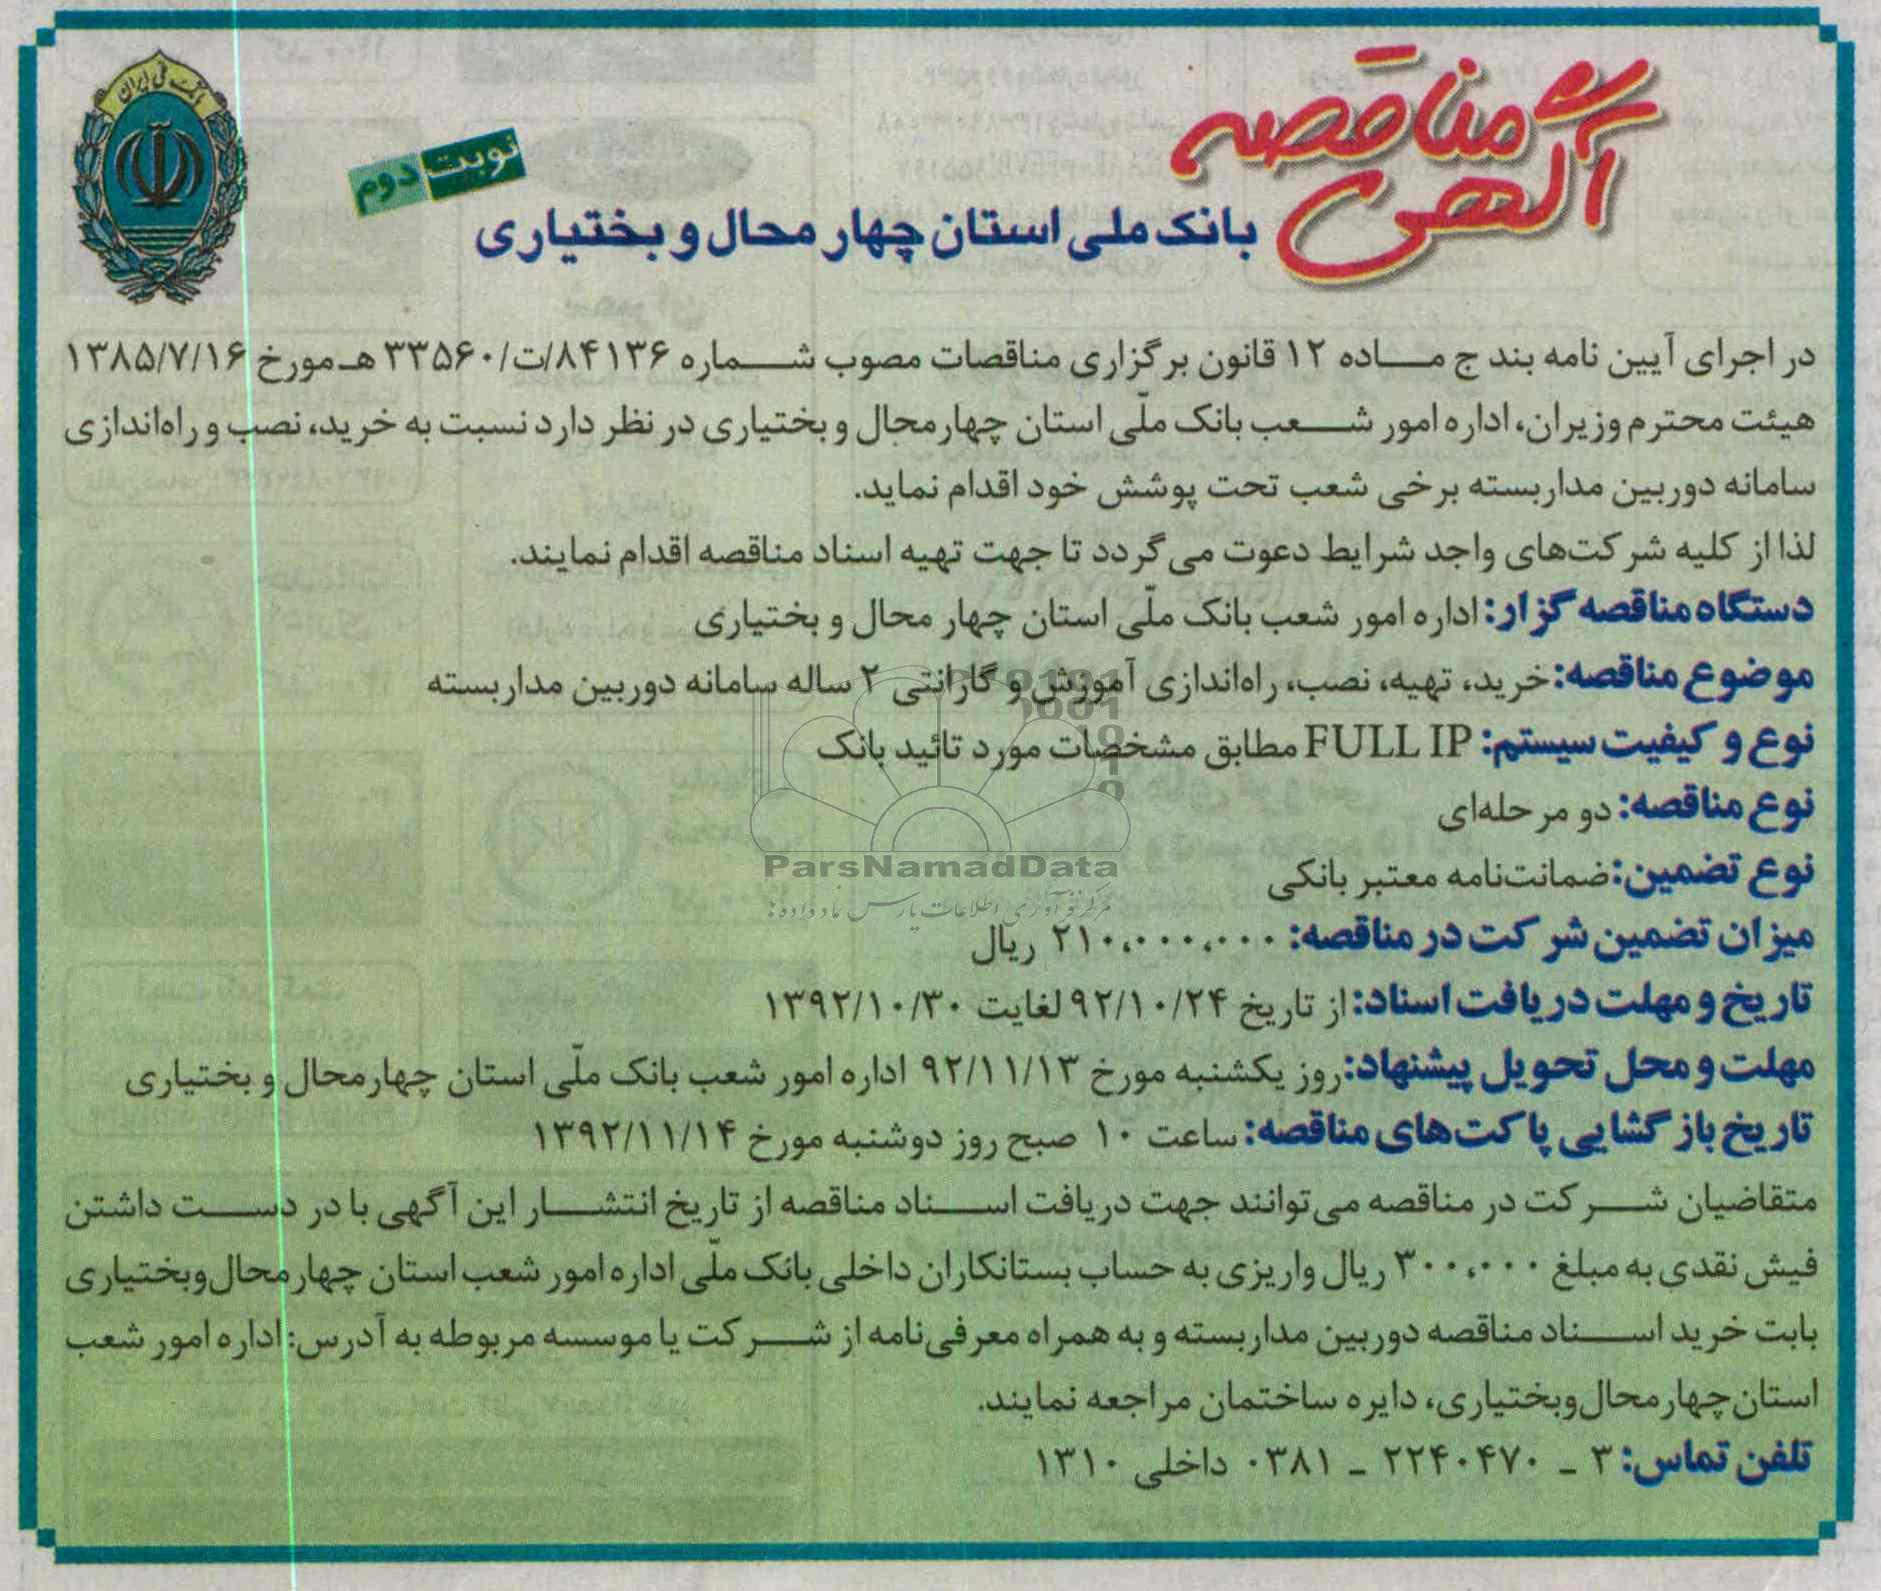 بانک ملی ایران
آگهی مناقصه
نوبت دوم
بانک ملی استان چهار محال و بختیاری
در اجرای آیین نامه بند ج ماده ۱۲ قانون برگزاری مناقصات مصوب شماره ۸۴۱۳۶/ت/۳۳۵۶۰ هـ مورخ ۱۳۸۵/۷/۱۶
هیئت محترم وزیران، اداره امور شعب بانک ملّی استان چهارمجال و بختیاری در نظر دارد نسبت به خرید، نصب و راه‌اندازی
سامانه دوربین مداربسته برخی شعب تحت پوشش خود اقدام نماید.
لذا از کلیه شرکت‌های واجد شرایط دعوت می‌گردد تا جهت تهیه اسناد مناقصه اقدام نمایند.
دستگاه مناقصه گزار: اداره امور شعب بانک ملّی استان چهار محال و بختیاری
موضوع مناقصه: خرید، تهیه، نصب، راه‌اندازی آموزش و گارانتی ۲ ساله سامانه دوربین مداربسته
نوع و کیفیت سیستم: FULL IP مطابق مشخصات مورد تائید بانک
نوع مناقصه: دو مرحله‌ای
ParsNamadData
نوع تضمین: ضمانت‌نامه معتبر بانکی
مرکز فرآوری اطلاعات پارس نماد داده ها
میزان تضمین شرکت در مناقصه: ۲۱۰،۰۰۰،۰۰۰ ریال
تاریخ و مهلت دریافت اسناد: از تاریخ ۹۲/۱۰/۲۴ لغایت ۱۳۹۲/۱۰/۳۰
مهلت و محل تحویل پیشنهاد: روز یکشنبه مورخ ۹۲/۱۱/۱۳ اداره امور شعب بانک ملّی استان چهارمحال و بختیاری
تاریخ باز گشایی پاکت‌های مناقصه: ساعت ۱۰ صبح روز دوشنبه مورخ ۱۳۹۲/۱۱/۱۴
متقاضیان شرکت در مناقصه می‌توانند جهت دریافت اسناد مناقصه از تاریخ انتشار این آگهی با در دست داشتن
فیش نقدی به مبلغ ۳۰۰،۰۰۰ ریال واریزی به حساب بستانکاران داخلی بانک ملّی اداره امور شعب استان چهارمحال‌وبختیاری
بابت خرید اسناد مناقصه دوربین مداربسته و به همراه معرفی‌نامه از شرکت یا موسسه مربوطه به آدرس: اداره امور شعب
استان چهارمحال‌وبختیاری، دایره ساختمان مراجعه نمایند.
تلفن تماس: ۳ ـ ۲۲۴۰۴۷۰ ـ ۰۳۸۱ داخلی ۱۳۱۰